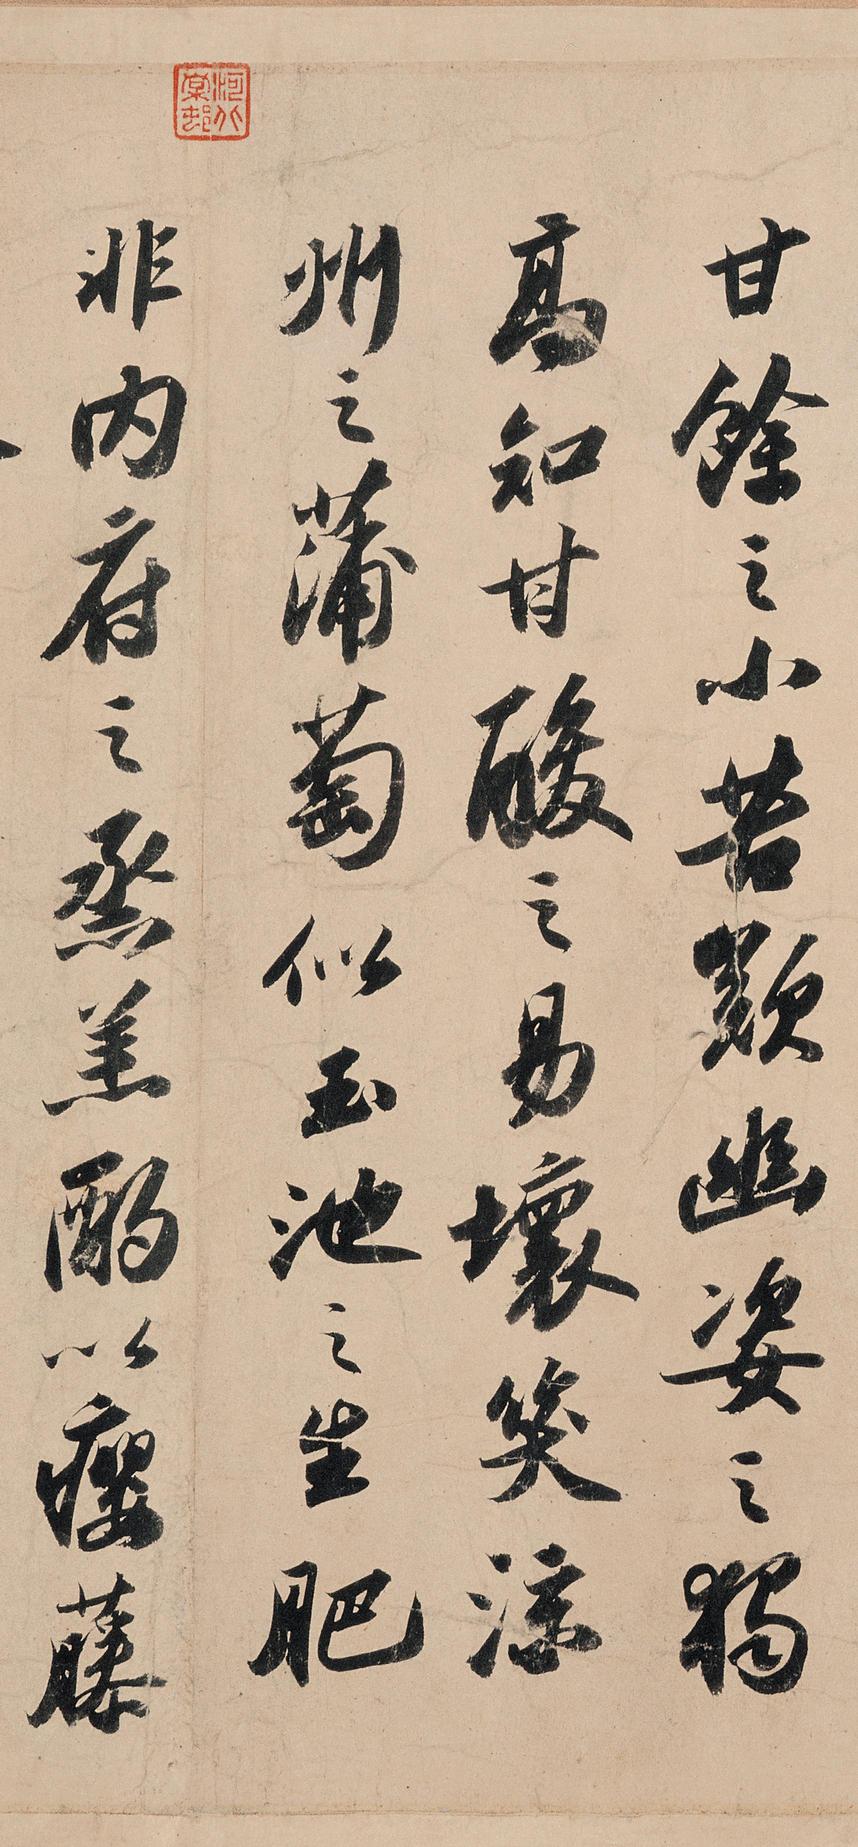 甘餘之小苦歎幽姿之獨
高知甘酸之易壞笑涼
州之蒲萄似玉池之生肥
非內府之烝羔酌以癭藤
河北棠邨